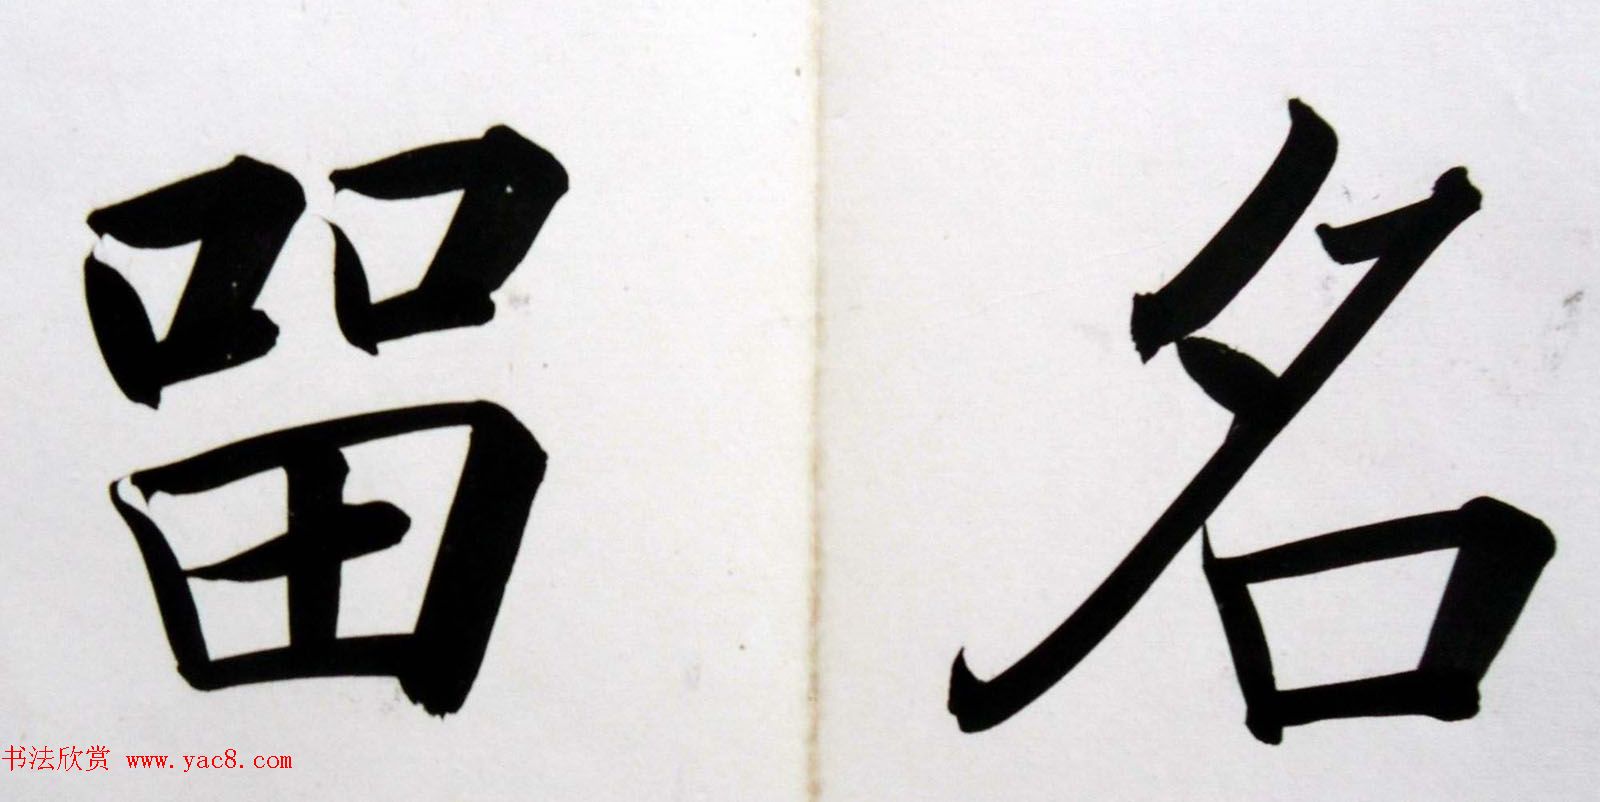 名㽞
书法欣赏 www.yac8.com